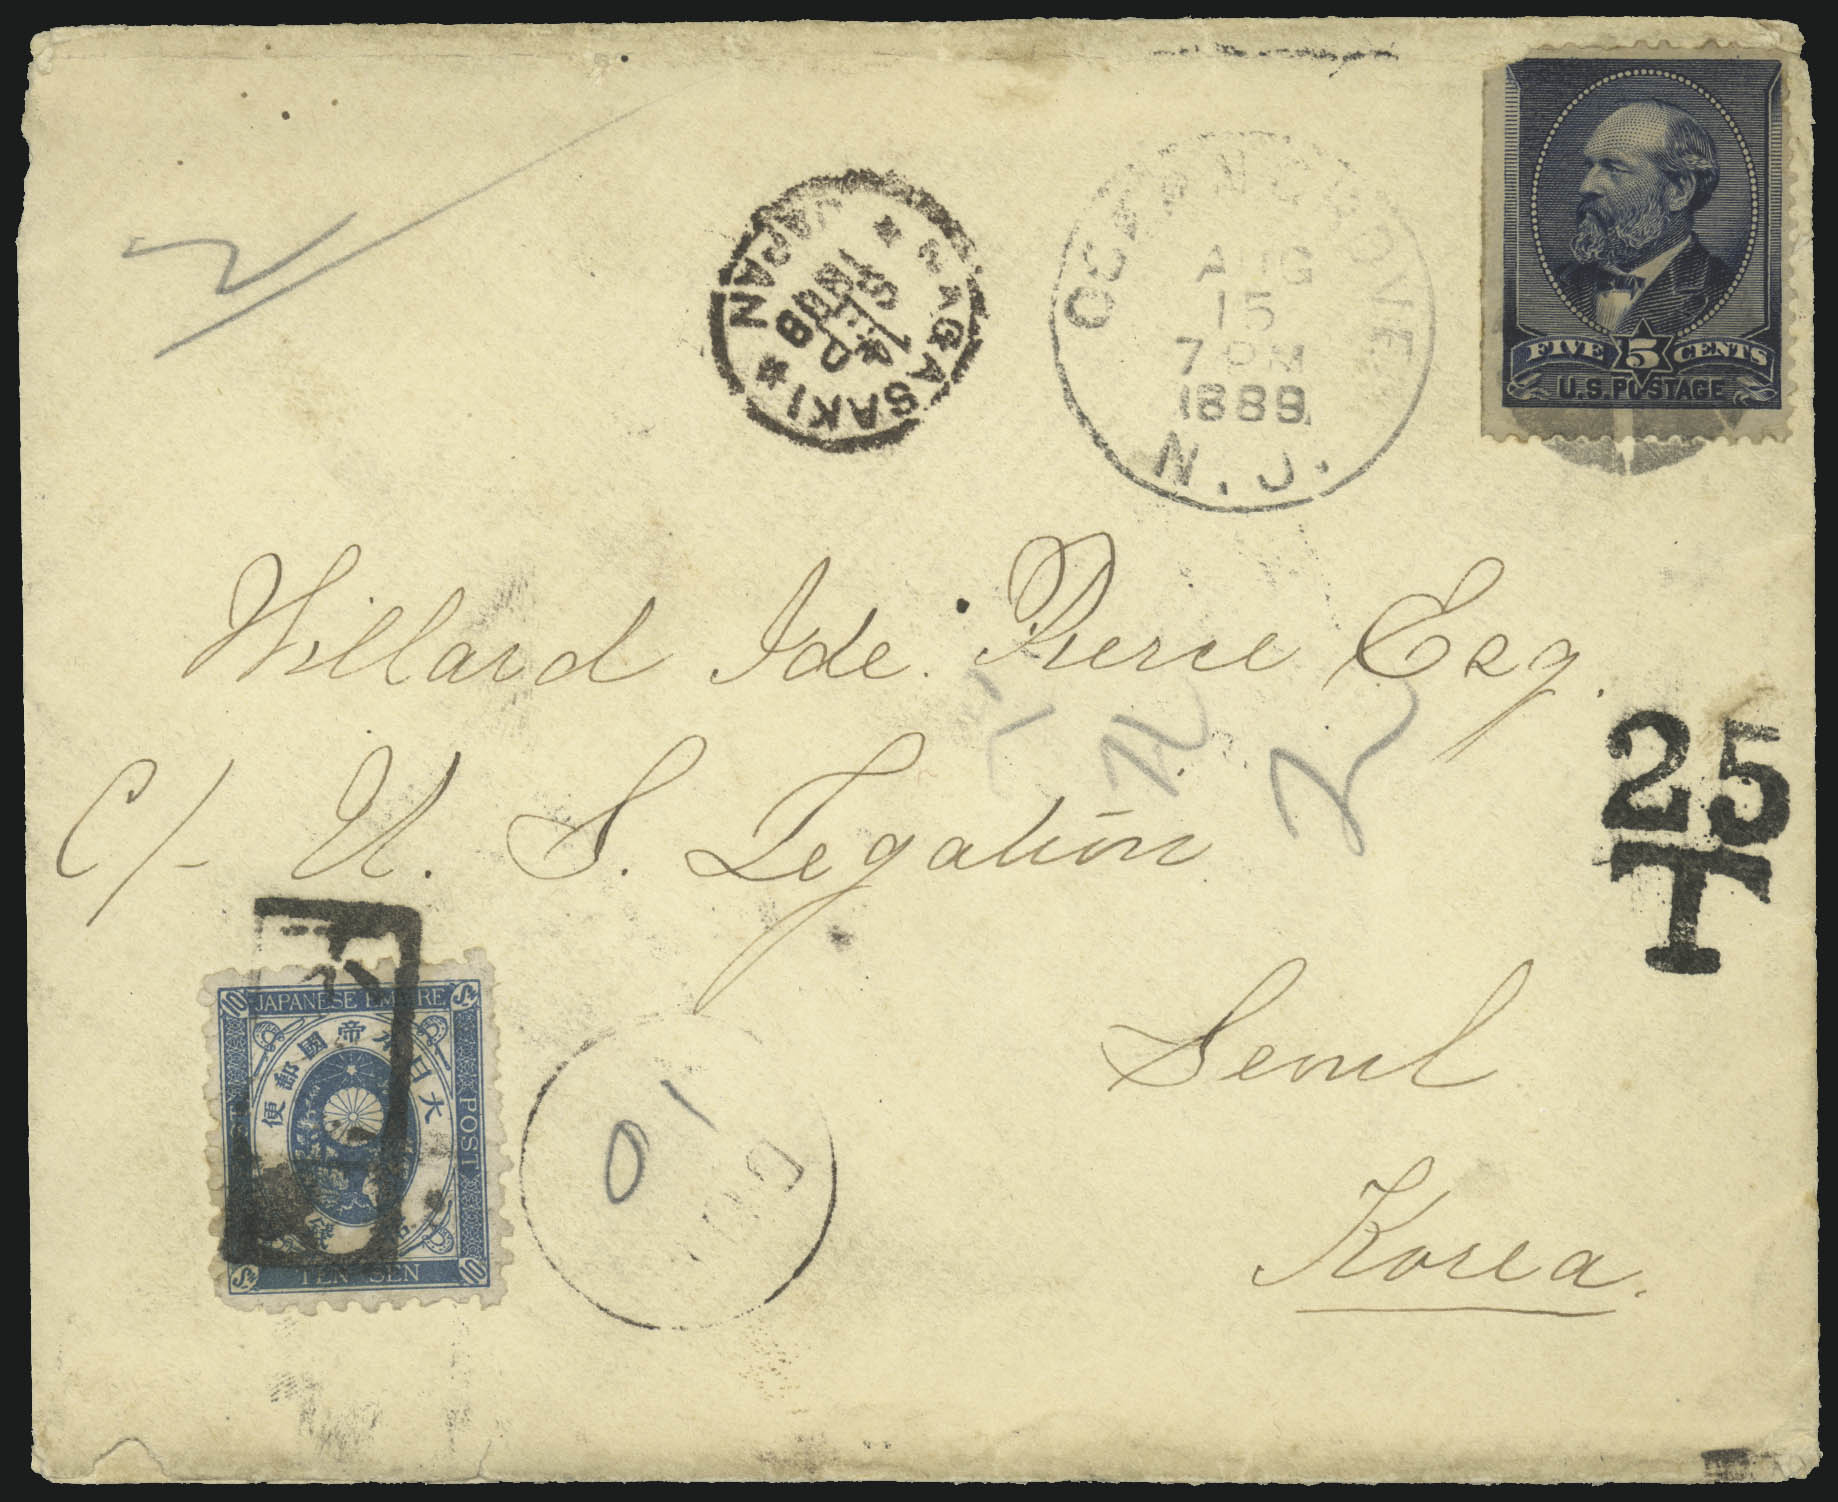 OCEAN GROVE
AUG
15
7 PM
1889
N. J.
NAGASAKI
JAPAN
14
SEP
FIVE 5 CENTS
U.S. POSTAGE
Willard Ide Pierce Esq.
C/- U. S. Legation
Seoul
Korea.
25
T
10 JAPANESE EMPIRE Sn
大日本帝國郵便
POST
Sn TEN SEN 10
10